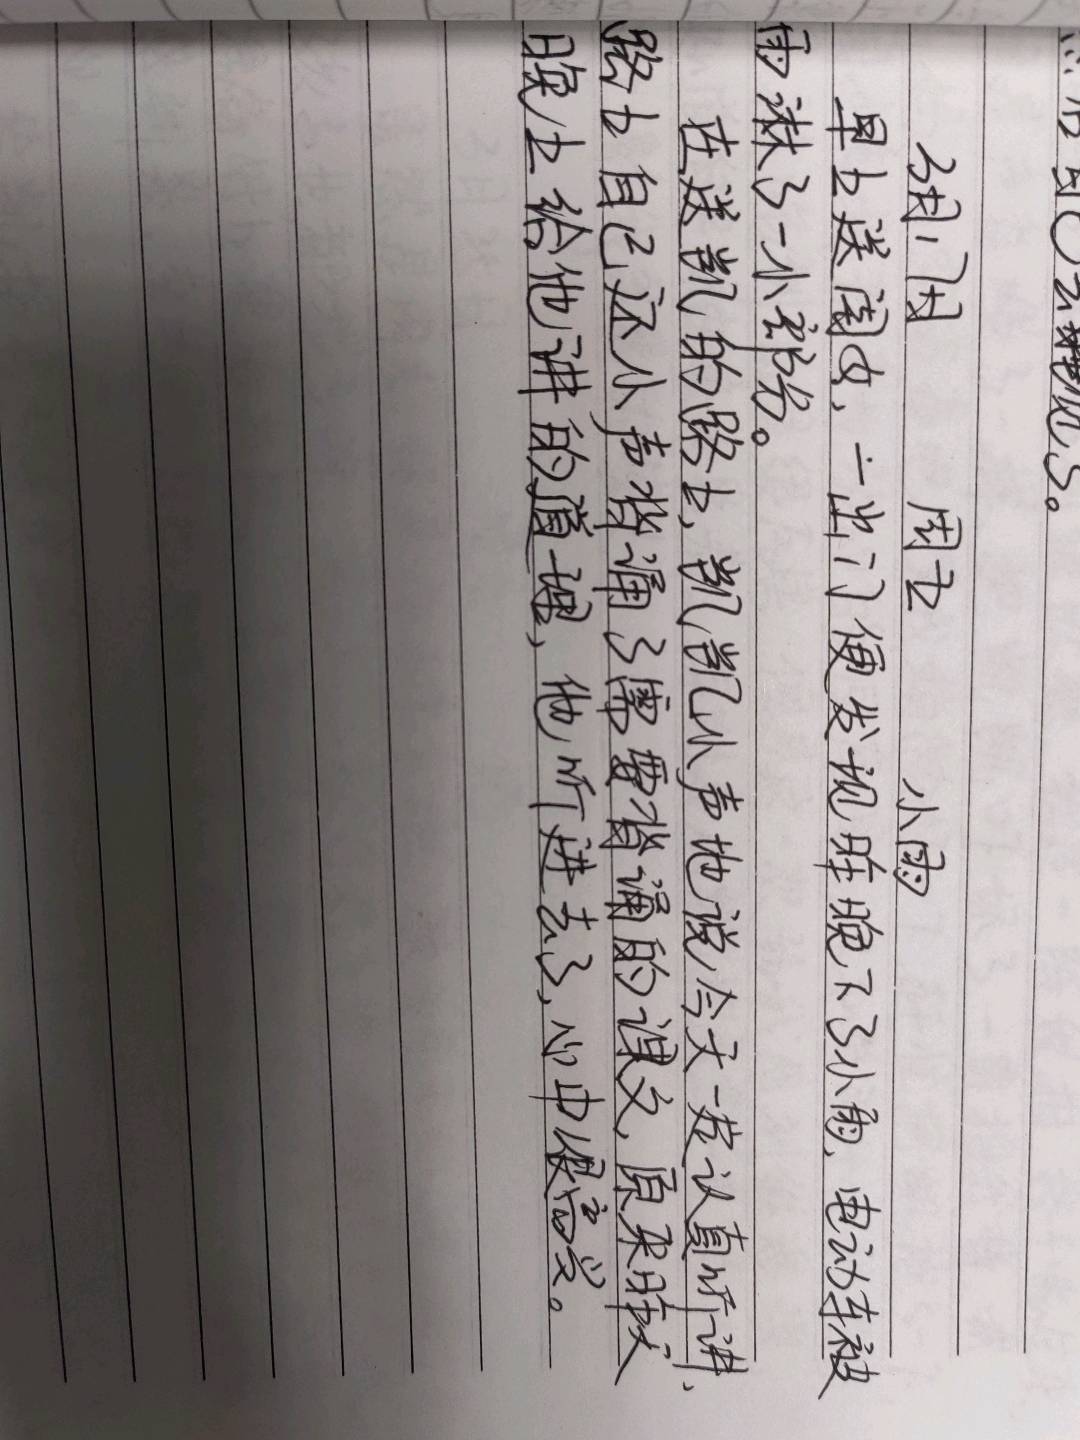 3月18日 周五 小雨
早上送闺女，一出门便发现昨晚下了小雨，电动车被
雨淋了一小部份。
在送凯的路上，凯凯小声地说今天一定认真听讲，
路上自己还小声背诵了需要背诵的课文，原来昨天
晚上给他讲的道理，他听进去了，心中很高兴。